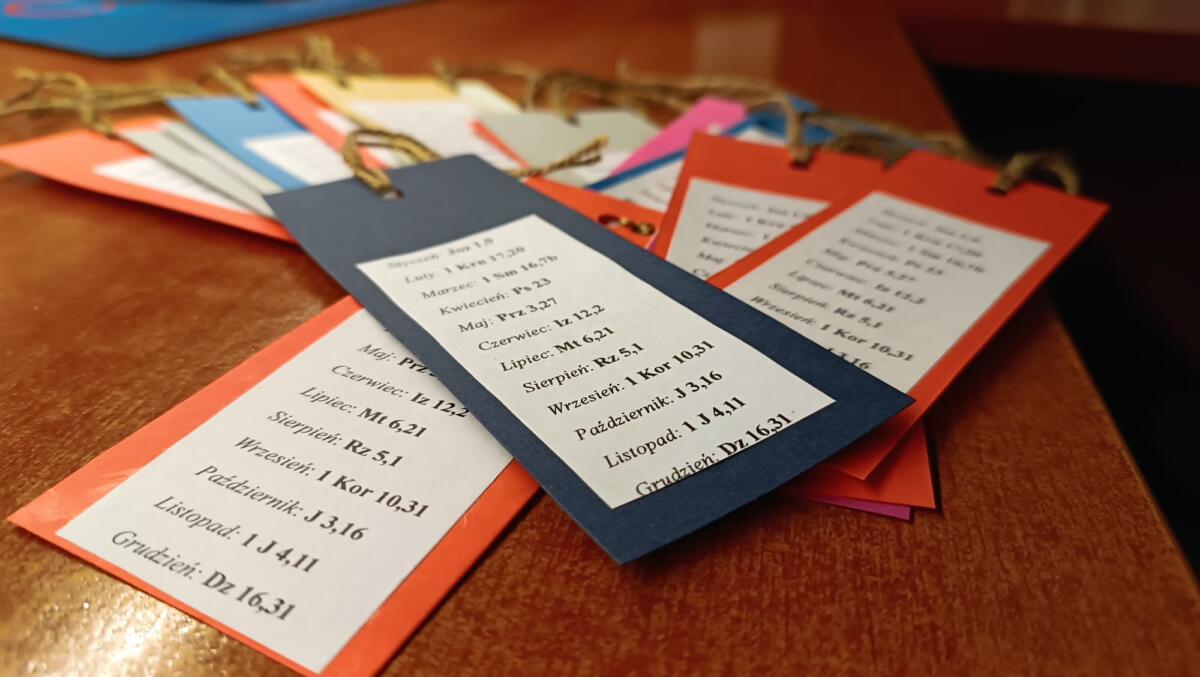 Styczeń: Joz 1,9
Luty: 1 Krn 17,20
Marzec: 1 Sm 16,7b
Kwiecień: Ps 23
Maj: Prz 3,27
Czerwiec: Iz 12,2
Lipiec: Mt 6,21
Sierpień: Rz 5,1
Wrzesień: 1 Kor 10,31
Październik: J 3,16
Listopad: 1 J 4,11
Grudzień: Dz 16,31
Maj: Prz
Czerwiec: Iz 12,2
Lipiec: Mt 6,21
Sierpień: Rz 5,1
Wrzesień: 1 Kor 10,31
Październik: J 3,16
Listopad: 1 J 4,11
Grudzień: Dz 16,31
Luty: 1 Krn
Kwiecień
Maj
Kwiecień: Ps 23
Maj: Prz 3,27
Czerwiec: Iz 12,2
Lipiec: Mt 6,21
Sierpień: Rz 5,1
Wrzesień: 1 Kor 10,31
3,16